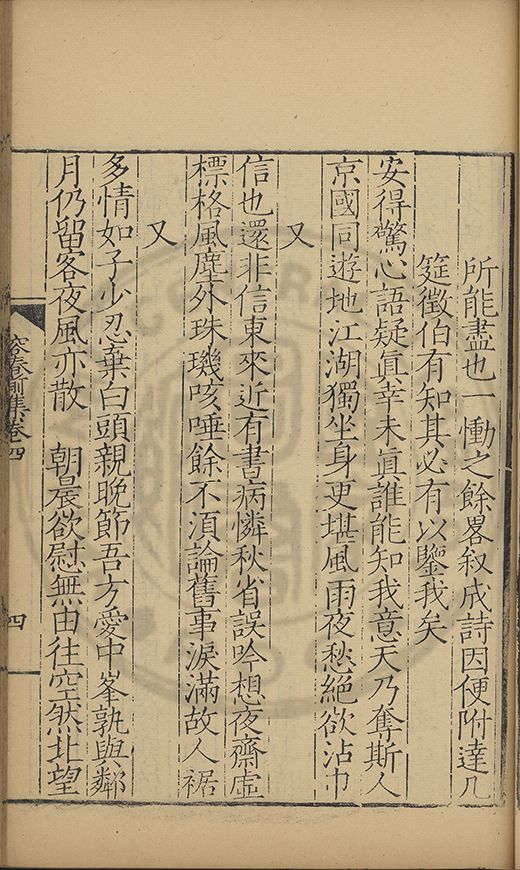 所能盡也一慟之餘畧叙成詩因便附達几
筵徵伯有知其必有以鑒我矣
安得驚心語疑眞幸未眞誰能知我意天乃奪斯人
京國同遊地江湖獨坐身更堪風雨夜愁絕欲沾巾
又
信也還非信東來近有書病憐秋省誤吟想夜齋虛
標格風塵外珠璣咳唾餘不湏論舊事淚滿故人裾
又
多情如子少忍棄白頭親晚節吾方愛中峯孰與鄰
月仍留客夜風亦散 朝晨欲慰無由往空然北望
容春前集卷四
四